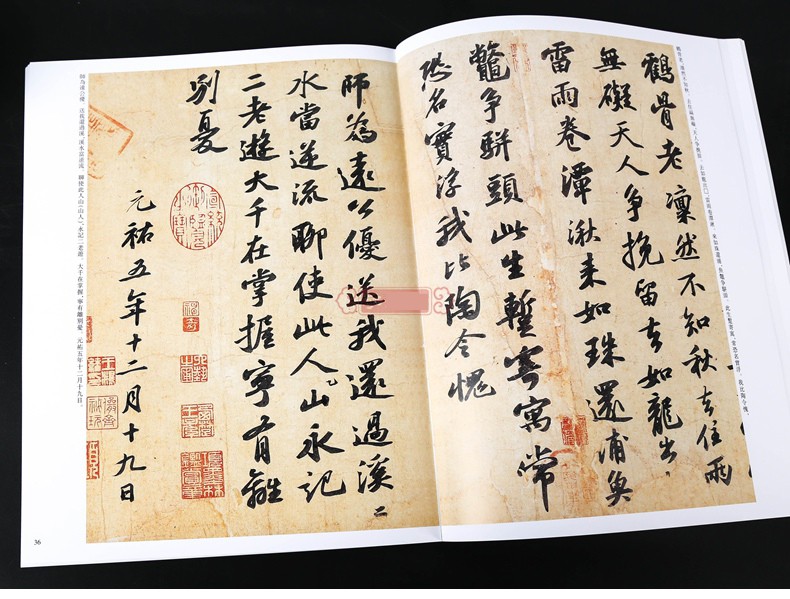 鶴骨老，凜然不知秋。去住兩無礙，天人爭挽留。去如龍出山，雷雨卷潭湫。來如珠還浦，魚鱉爭駢頭。此生暫寄寓，常恐名實浮。我比陶令愧，
鶴骨老凜然不知秋去住兩
無礙天人爭挽留去如龍出山
雷雨卷潭湫来如珠還浦魚
鼈爭駢頭此生暫寄寓常
恐名實浮我比陶令愧
師為遠公優送我還過溪二
水當逆流聊使此人山永記
二老遊大千在掌握寧有離
別憂
元祐五年十二月十九日
師為遠公優。送我還過溪，溪水當逆流。聊使此人山（山人），永記二老遊。大千在掌握，寧有離別憂。元祐五年十二月十九日。
36